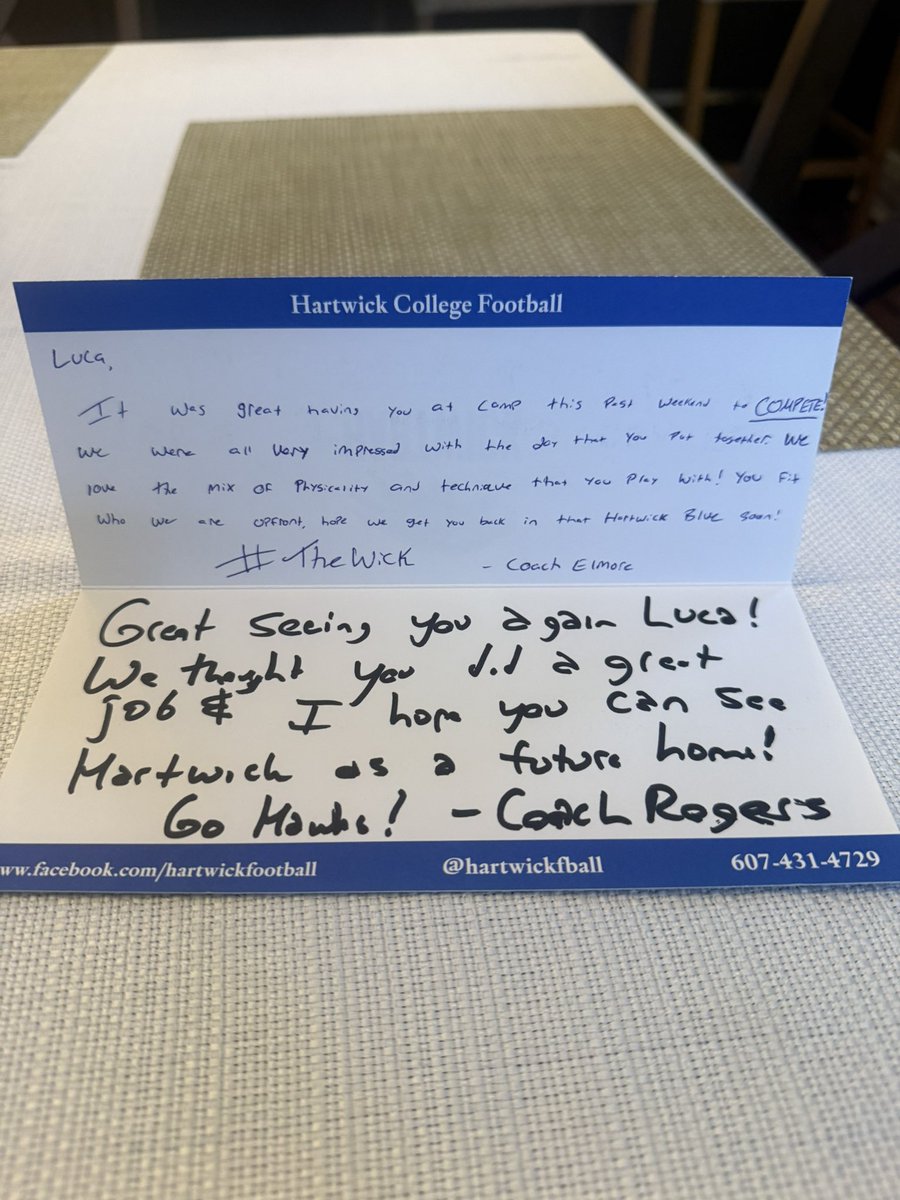 Hartwick College Football
Luca,
It was great having you at camp this past weekend to COMPETE!
we were all very impressed with the day that you put together. We
love the mix of Physicality and technique that you Play with! You Fit
who we are upfront, hope we get you back in that Hartwick Blue soon!
#TheWick - Coach Elmore
Great seeing you again Luca!
We thought you did a great
job & I hope you can see
Hartwick as a future home!
Go Hawks! - Coach Rogers
ww.facebook.com/hartwickfootball @hartwickfball 607-431-4729